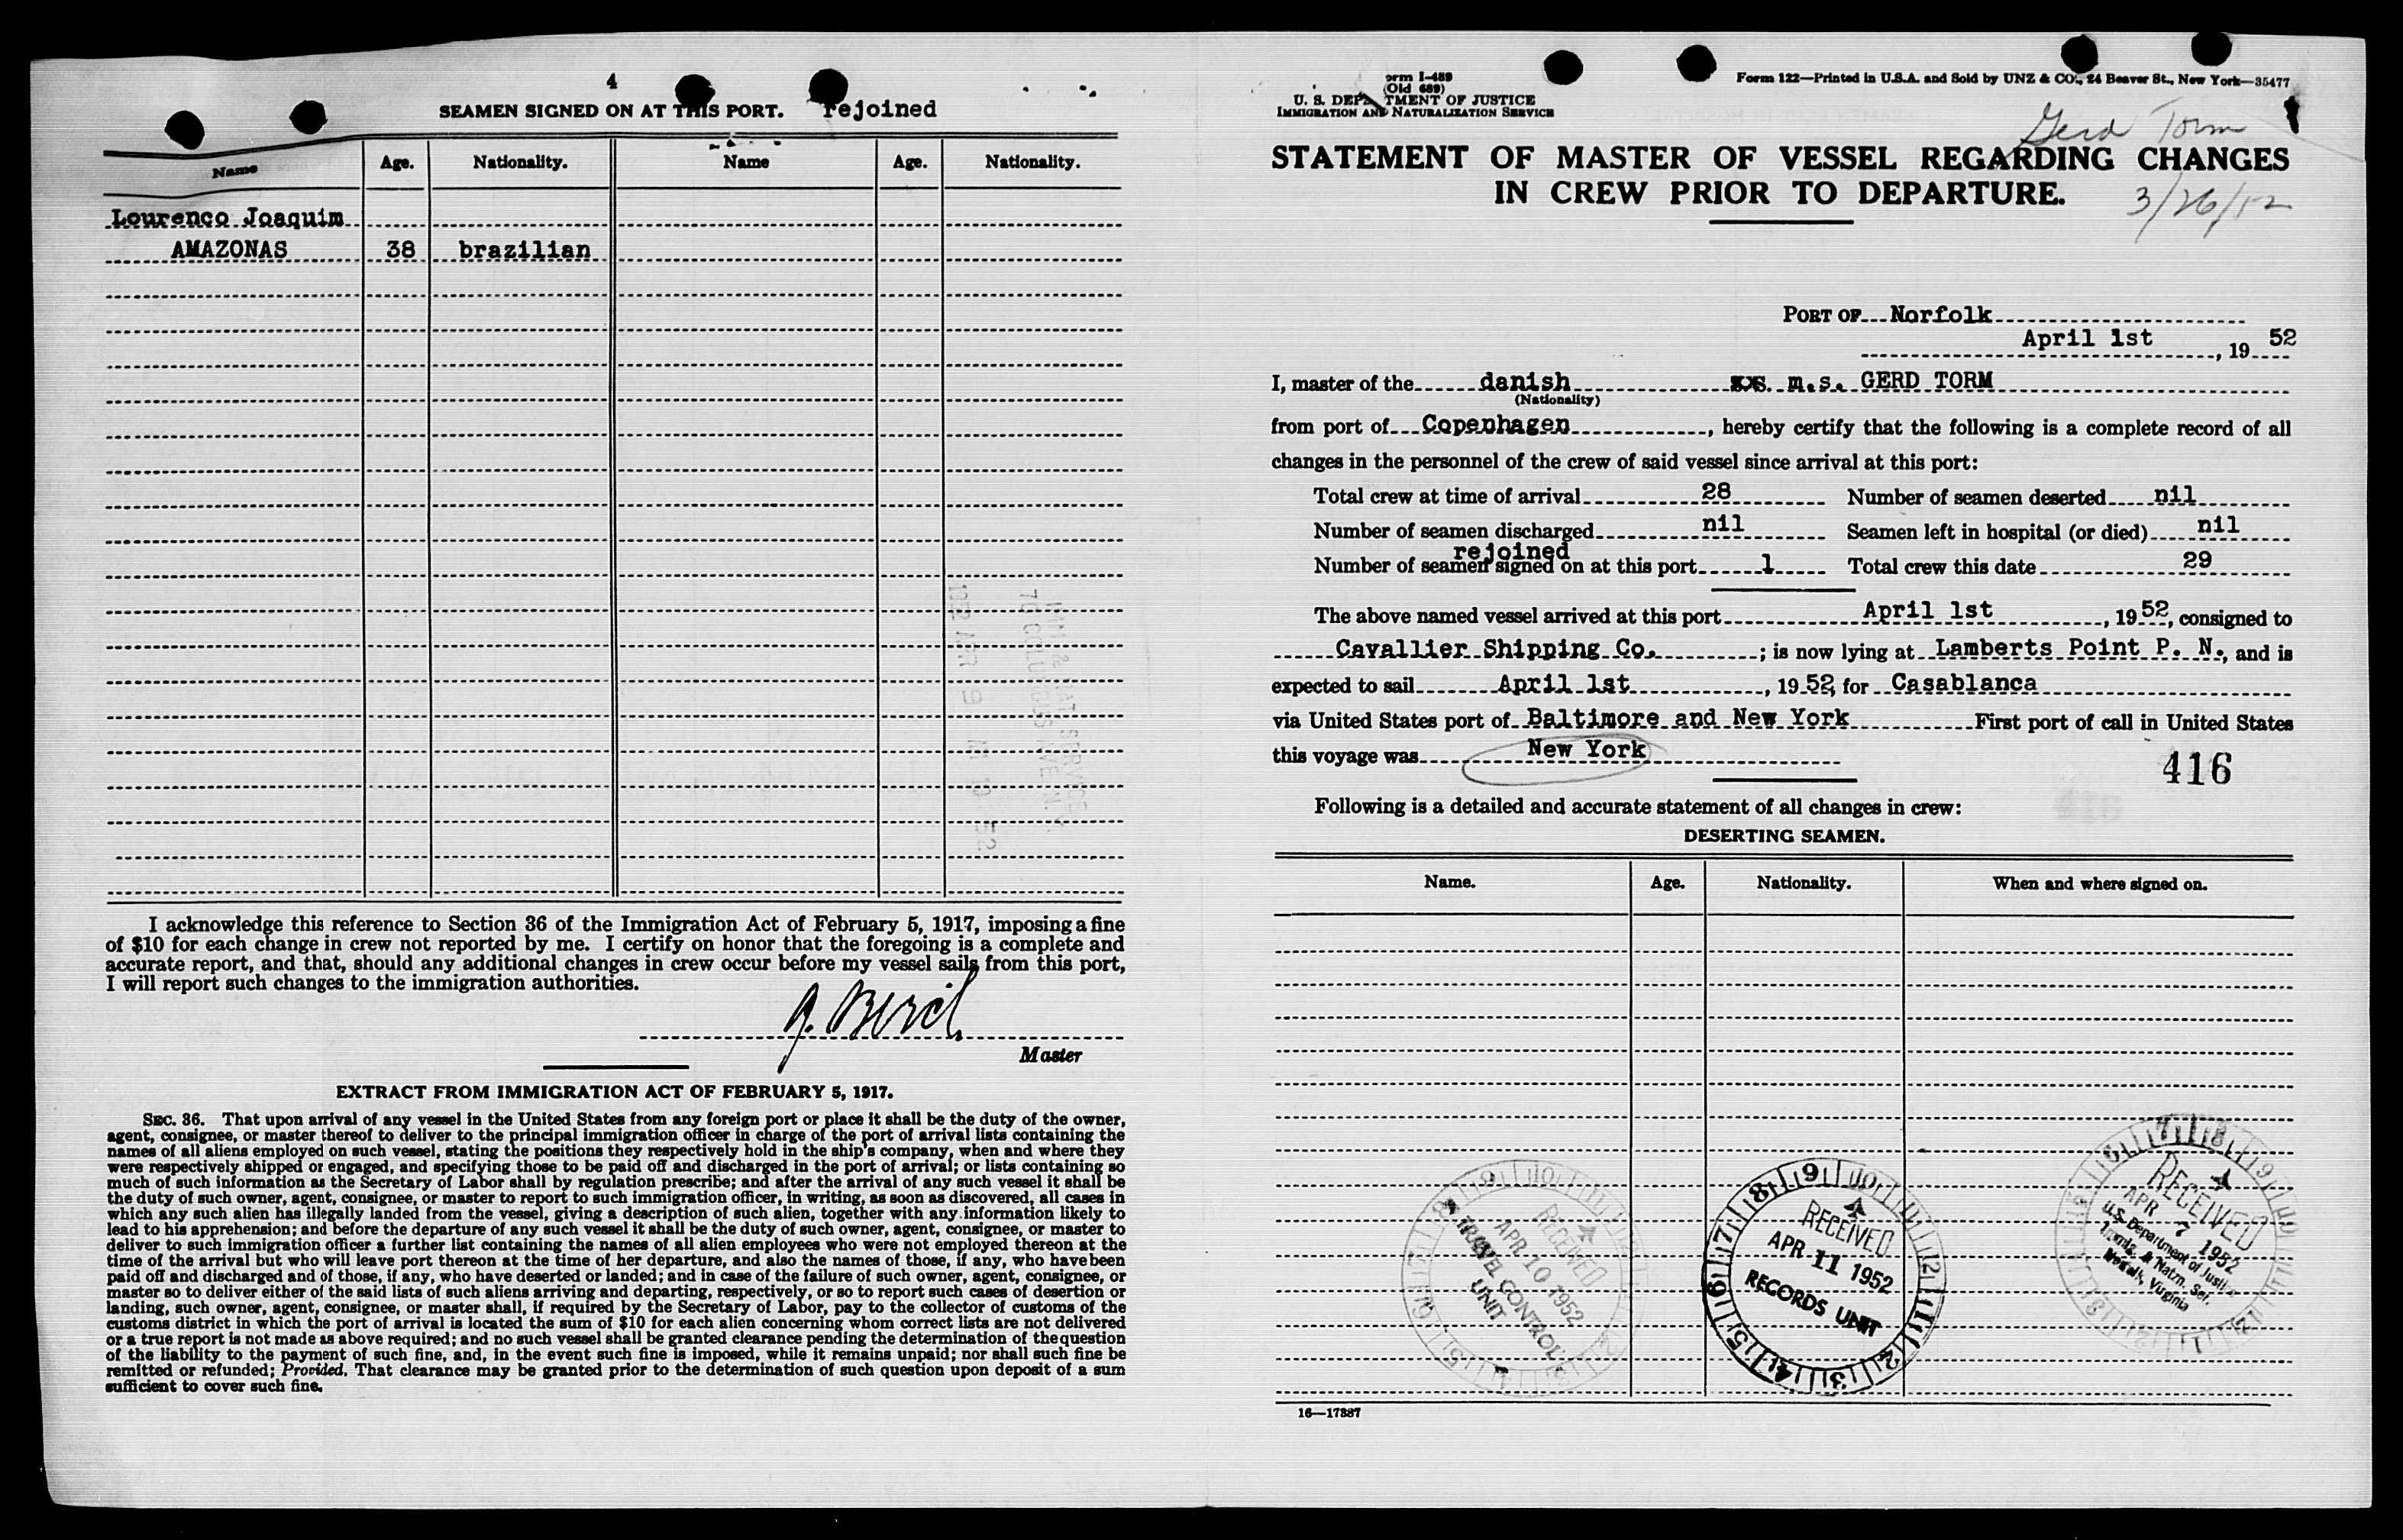 4
SEAMEN SIGNED ON AT THIS PORT. rejoined
Name Age. Nationality. Name Age. Nationality.
Lourenco Joaquim
AMAZONAS 38 brazilian
I acknowledge this reference to Section 36 of the Immigration Act of February 5, 1917, imposing a fine
of $10 for each change in crew not reported by me. I certify on honor that the foregoing is a complete and
accurate report, and that, should any additional changes in crew occur before my vessel sails from this port,
I will report such changes to the immigration authorities.
Master
EXTRACT FROM IMMIGRATION ACT OF FEBRUARY 5, 1917.
SEC. 36. That upon arrival of any vessel in the United States from any foreign port or place it shall be the duty of the owner,
agent, consignee, or master thereof to deliver to the principal immigration officer in charge of the port of arrival lists containing the
names of all aliens employed on such vessel, stating the positions they respectively hold in the ship's company, when and where they
were respectively shipped or engaged, and specifying those to be paid off and discharged in the port of arrival; or lists containing so
much of such information as the Secretary of Labor shall by regulation prescribe; and after the arrival of any such vessel it shall be
the duty of such owner, agent, consignee, or master to report to such immigration officer, in writing, as soon as discovered, all cases in
which any such alien has illegally landed from the vessel, giving a description of such alien, together with any information likely to
lead to his apprehension; and before the departure of any such vessel it shall be the duty of such owner, agent, consignee, or master to
deliver to such immigration officer a further list containing the names of all alien employees who were not employed thereon at the
time of the arrival but who will leave port thereon at the time of her departure, and also the names of those, if any, who have been
paid off and discharged and of those, if any, who have deserted or landed; and in case of the failure of such owner, agent, consignee, or
master so to deliver either of the said lists of such aliens arriving and departing, respectively, or so to report such cases of desertion or
landing, such owner, agent, consignee, or master shall, if required by the Secretary of Labor, pay to the collector of customs of the
customs district in which the port of arrival is located the sum of $10 for each alien concerning whom correct lists are not delivered
or a true report is not made as above required; and no such vessel shall be granted clearance pending the determination of the question
of the liability to the payment of such fine, and, in the event such fine is imposed, while it remains unpaid; nor shall such fine be
remitted or refunded; Provided, That clearance may be granted prior to the determination of such question upon deposit of a sum
sufficient to cover such fine.
orm I-489
(Old 689)
U. S. DEPARTMENT OF JUSTICE
IMMIGRATION AND NATURALIZATION SERVICE
Form 122—Printed in U.S.A. and Sold by UNZ & CO., 24 Beaver St., New York—35477
Gerd Torm
STATEMENT OF MASTER OF VESSEL REGARDING CHANGES
IN CREW PRIOR TO DEPARTURE.
3/26/52
PORT OF Norfolk
April 1st, 19 52
I, master of the danish m.s. GERD TORM
(Nationality)
from port of Copenhagen, hereby certify that the following is a complete record of all
changes in the personnel of the crew of said vessel since arrival at this port:
Total crew at time of arrival 28 Number of seamen deserted nil
Number of seamen discharged nil Seamen left in hospital (or died) nil
rejoined
Number of seamen signed on at this port 1 Total crew this date 29
The above named vessel arrived at this port April 1st, 19 52, consigned to
Cavallier Shipping Co.; is now lying at Lamberts Point P. N., and is
expected to sail April 1st, 19 52, for Casablanca
via United States port of Baltimore and New York First port of call in United States
this voyage was New York
416
Following is a detailed and accurate statement of all changes in crew:
DESERTING SEAMEN.
Name. Age. Nationality. When and where signed on.
RECEIVED
APR 10 1952
TRAVEL CONTROL
UNIT
RECEIVED
APR 11 1952
RECORDS UNIT
RECEIVED
APR 7 1952
U.S. Department of Justice
Immig. & Natzn. Ser.
Norfolk, Virginia
16—17387